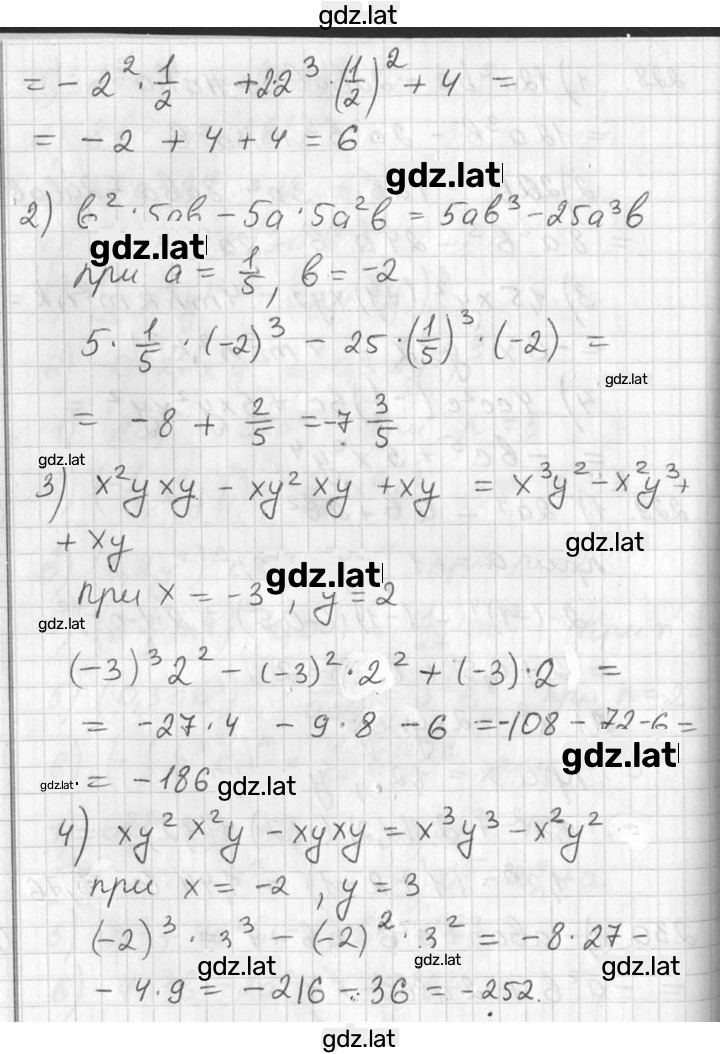 gdz.lat
= - 2² · 1/2 + 2·2³ · (1/2)² + 4 =
= - 2 + 4 + 4 = 6
gdz.lat
2) в² · 5ав - 5а · 5а²в = 5ав³ - 25а³в
gdz.lat
при а = 1/5, в = -2
5 · 1/5 · (-2)³ - 25 · (1/5)³ · (-2) =
gdz.lat
= -8 + 2/5 = -7 3/5
gdz.lat
3) x²y xy - xy² xy + xy = x³y² - x²y³ +
+ xy
gdz.lat
gdz.lat
при x = -3, y = 2
gdz.lat
(-3)³ 2² - (-3)² · 2² + (-3) · 2 =
= -27 · 4 - 9 · 8 - 6 = -108 - 72 - 6 =
gdz.lat
gdz.lat
= -186
gdz.lat
4) xy² x²y - xyxy = x³y³ - x²y²
при x = -2, y = 3
(-2)³ · 3³ - (-2)² · 3² = -8 · 27 -
gdz.lat
gdz.lat
gdz.lat
- 4 · 9 = -216 - 36 = -252.
gdz.lat